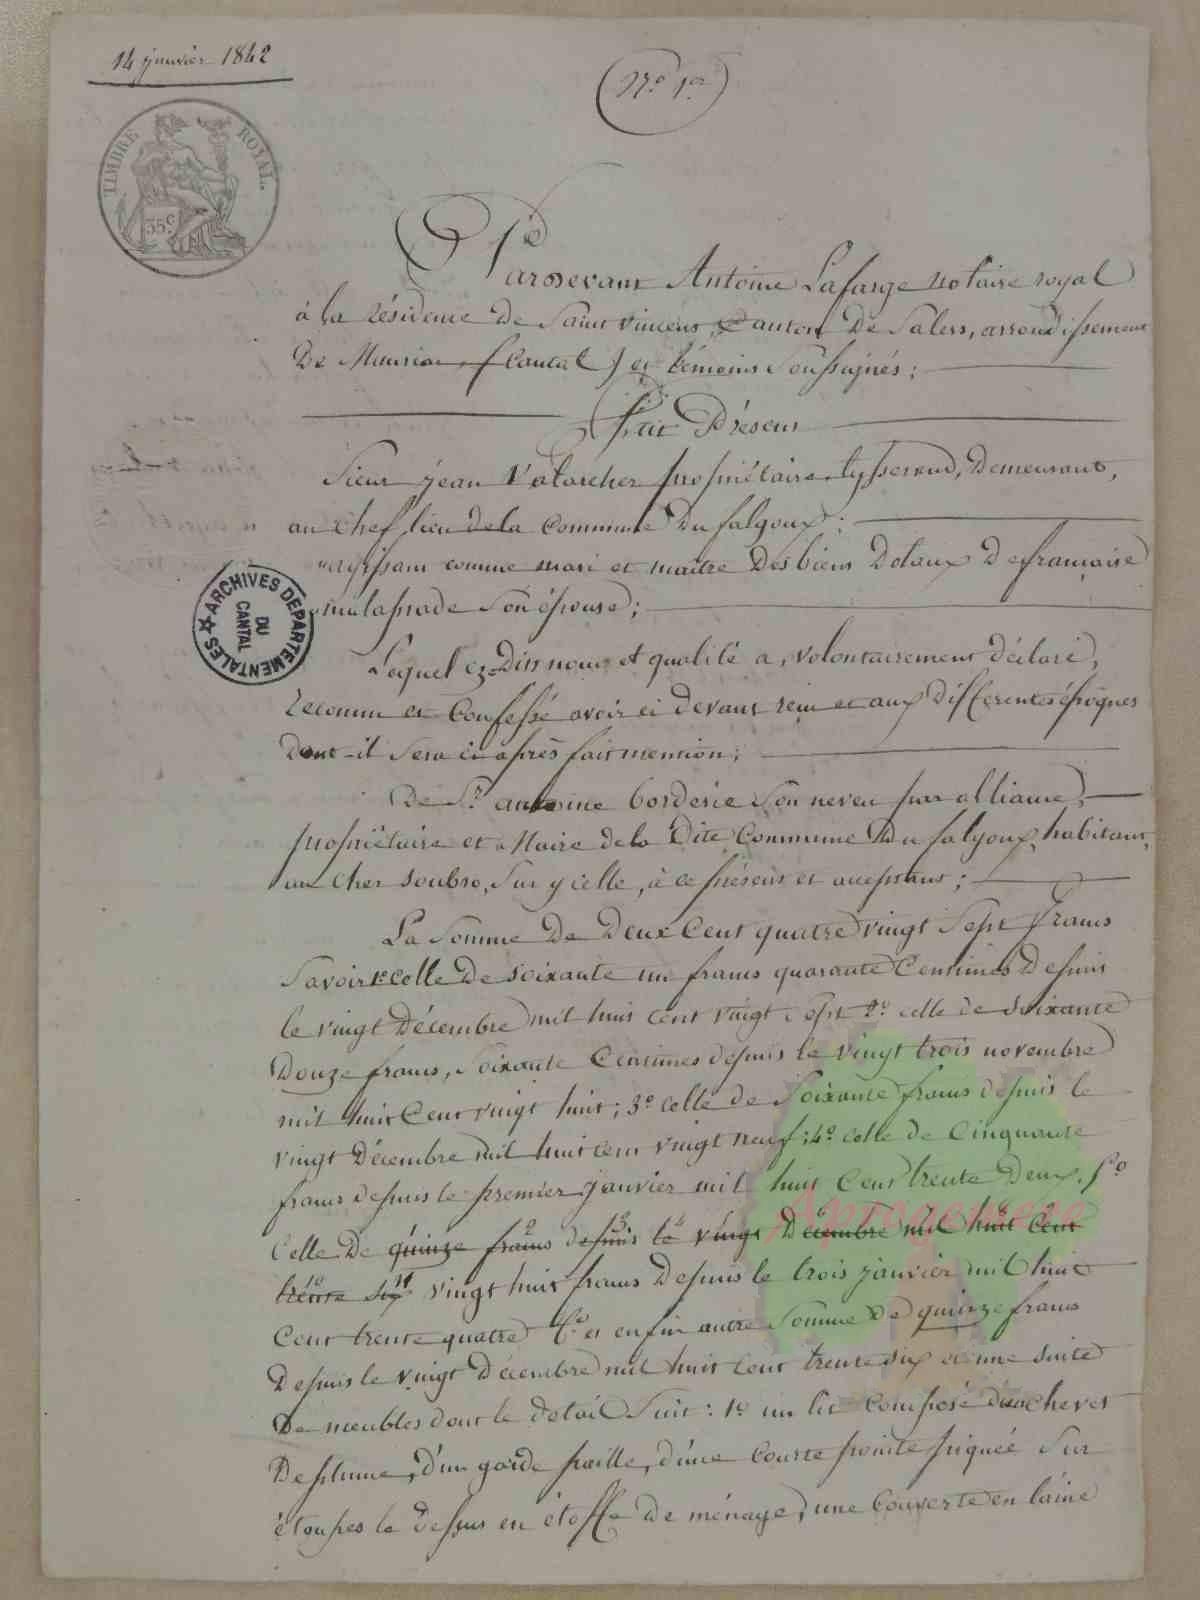 14 janvier 1842
(N.o 1er)
TIMBRE ROYAL.
35c
Pardevant Antoine Lafarge notaire royal
à la résidence de Saint vincent, Canton de Salers, arrondissement
De Mauriac, (Cantal) et témoins Soussignés;
fut Présent
Sieur jean Valarcher propriétaire tysserand, Demeurant,
au chef lieu de la Commune Du falgoux;
agissant comme mari et maitre Des biens Dotaux De française
malaprade Son épouse;
ARCHIVES DEPARTEMENTALES
DU
CANTAL
Lequel ez-Dits noms et qualité a, volontairement déclaré,
Reconnu et Confessé avoir ci devant reçu et aux differentes époques
Dont-il Sera ci après fait mention;
De Sr. antoine borderie Son neveu par alliance,
propriétaire et Maire de la Dite Commune Du falgoux, habitant,
au Cher Soubro, Sur ycelle, à ce présent et acceptant;
La Somme De Deux Cent quatre vingt Sept francs
Savoir 1e celle De soixante un francs quarante Centimes Depuis
le vingt Décembre mil huit cent vingt sept 2o. celle de Soixante
Douze francs, Soixante Centimes depuis le vingt trois novembre
mil huit Cent vingt huit; 3o celle de Soixante francs depuis le
vingt Décembre mil huit cent vingt neuf; 4o celle de Cinquante
francs depuis le premier janvier mil huit Cent trente Deux. 5o
Celle De quinze francs depuis le vingt Décembre mil huit Cent
trente six vingt huit francs Depuis le trois janvier mil huit
Cent trente quatre 6o et enfin autre Somme De quinze francs
Depuis le vingt Décembre mil huit cent trente six et une suite
De meubles dont le détail Suit: 1o un lit Composé d'un chevet
De plume, d'un garde paille, d'une courte pointe piquée Sur
étoupes le dessus en étoffe De ménage, une Couverte en laine
Aprogemere